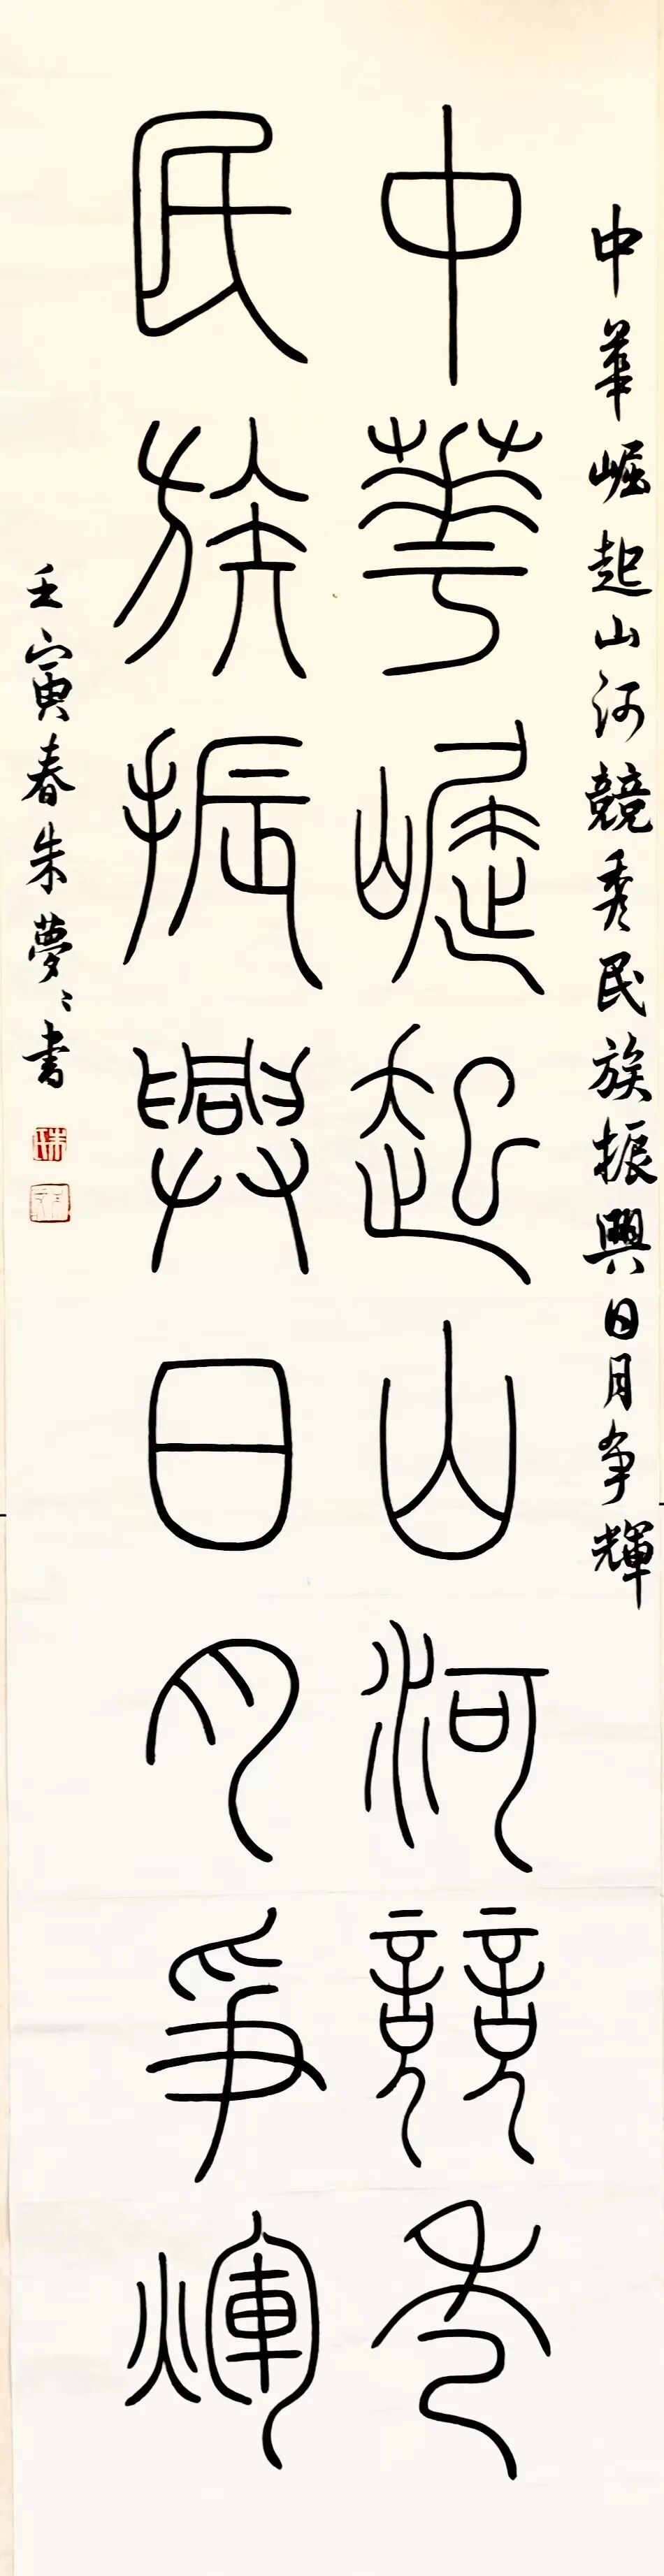 中華崛起山河競秀民族振興日月争輝
中華崛起山河競秀
民族振興日月爭煇
壬寅春朱夢〻書